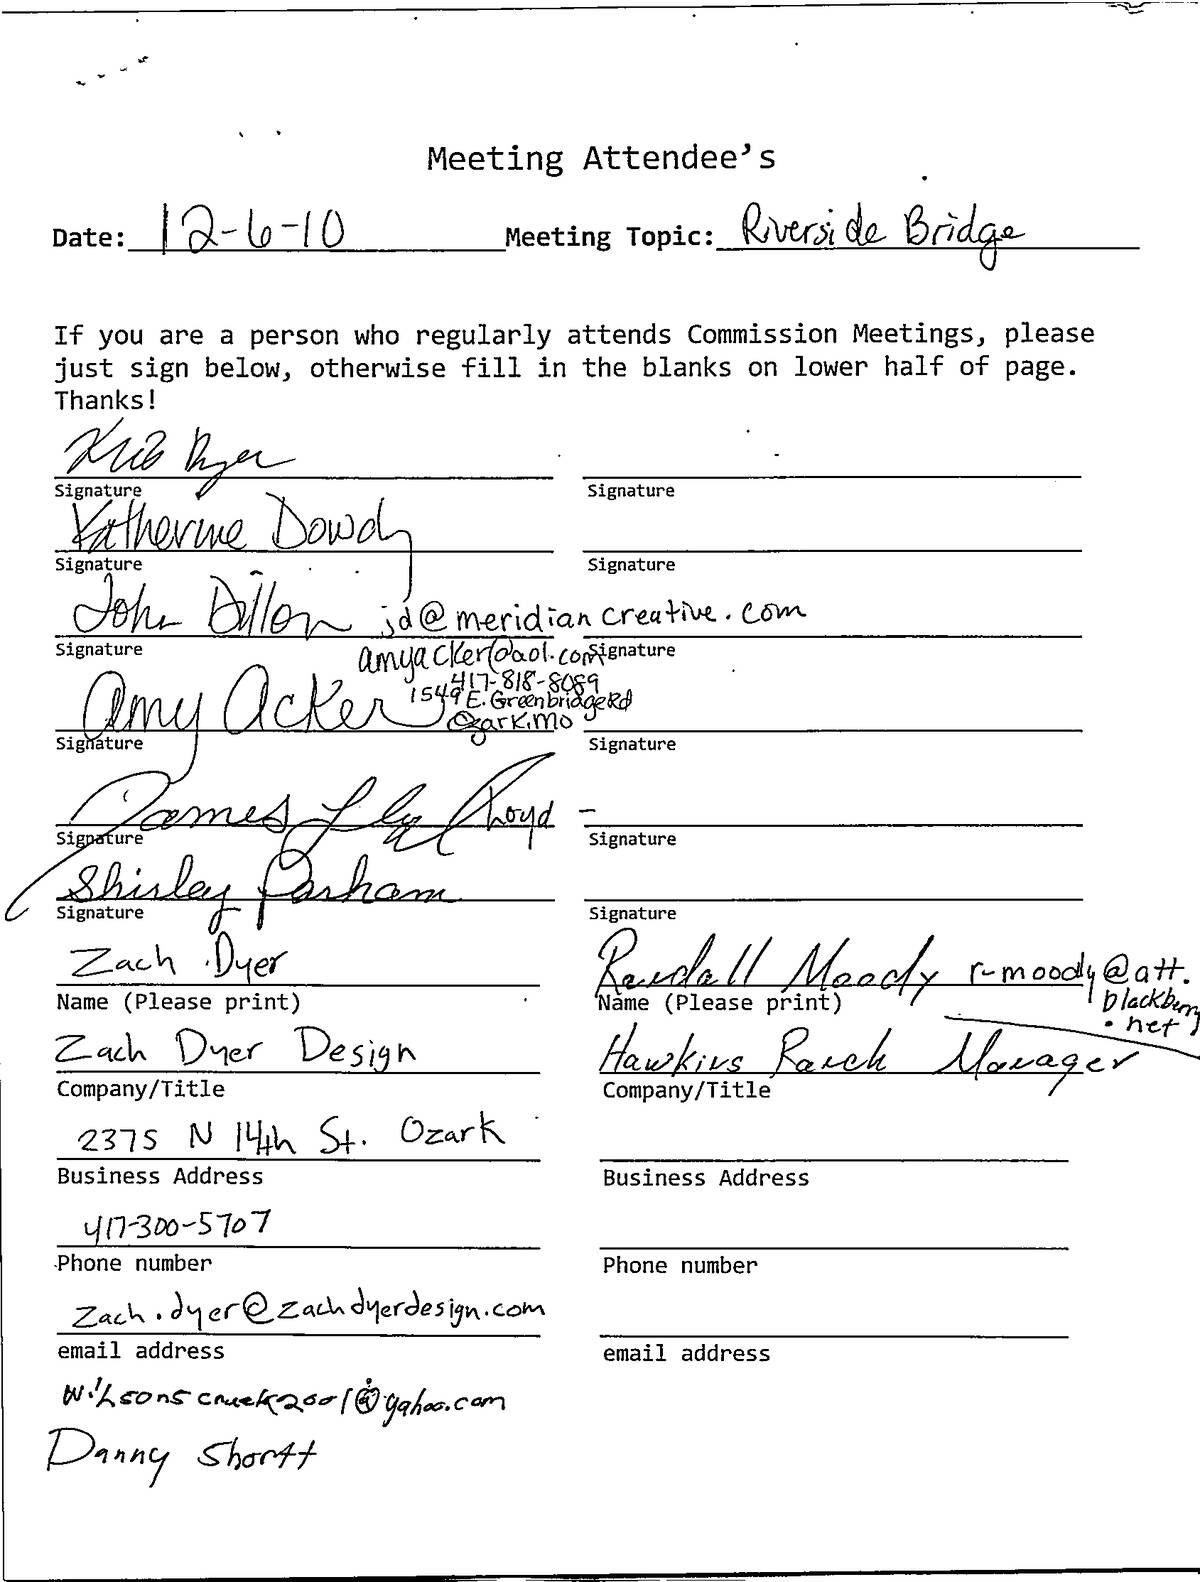 Meeting Attendee's
Date: 12-6-10 Meeting Topic: Riverside Bridge
If you are a person who regularly attends Commission Meetings, please
just sign below, otherwise fill in the blanks on lower half of page.
Thanks!
Dyer
Signature Signature
Katherine Dowdy
Signature Signature
John Dillon jd@meridiancreative.com
Signature Signature
amyacker@aol.com
417-818-8089
Amy Acker 1549 E. Greenbridge Rd
Ozark, MO
Signature Signature
James Lloyd -
Signature Signature
Shirley Parham
Signature Signature
Zach Dyer Randall Moody r-moody@att.
blackberry
.net
Name (Please print) Name (Please print)
Zach Dyer Design Hawkins Ranch Manager
Company/Title Company/Title
2375 N 14th St. Ozark
Business Address Business Address
417-300-5707
Phone number Phone number
zach.dyer@zachdyerdesign.com
email address email address
wilsonscreek2001@yahoo.com
Danny Shortt